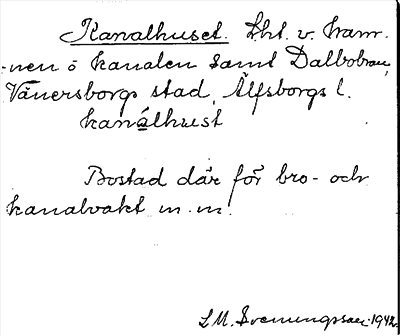 Kanalhuset. Lht. v. ham-
nen o kanalen samt Dalbobron,
Vänersborgs stad, Älfsborgs l.
kanálhust
Bostad där för bro- och
kanalvakt m.m.
L M. Svenungsson 1942